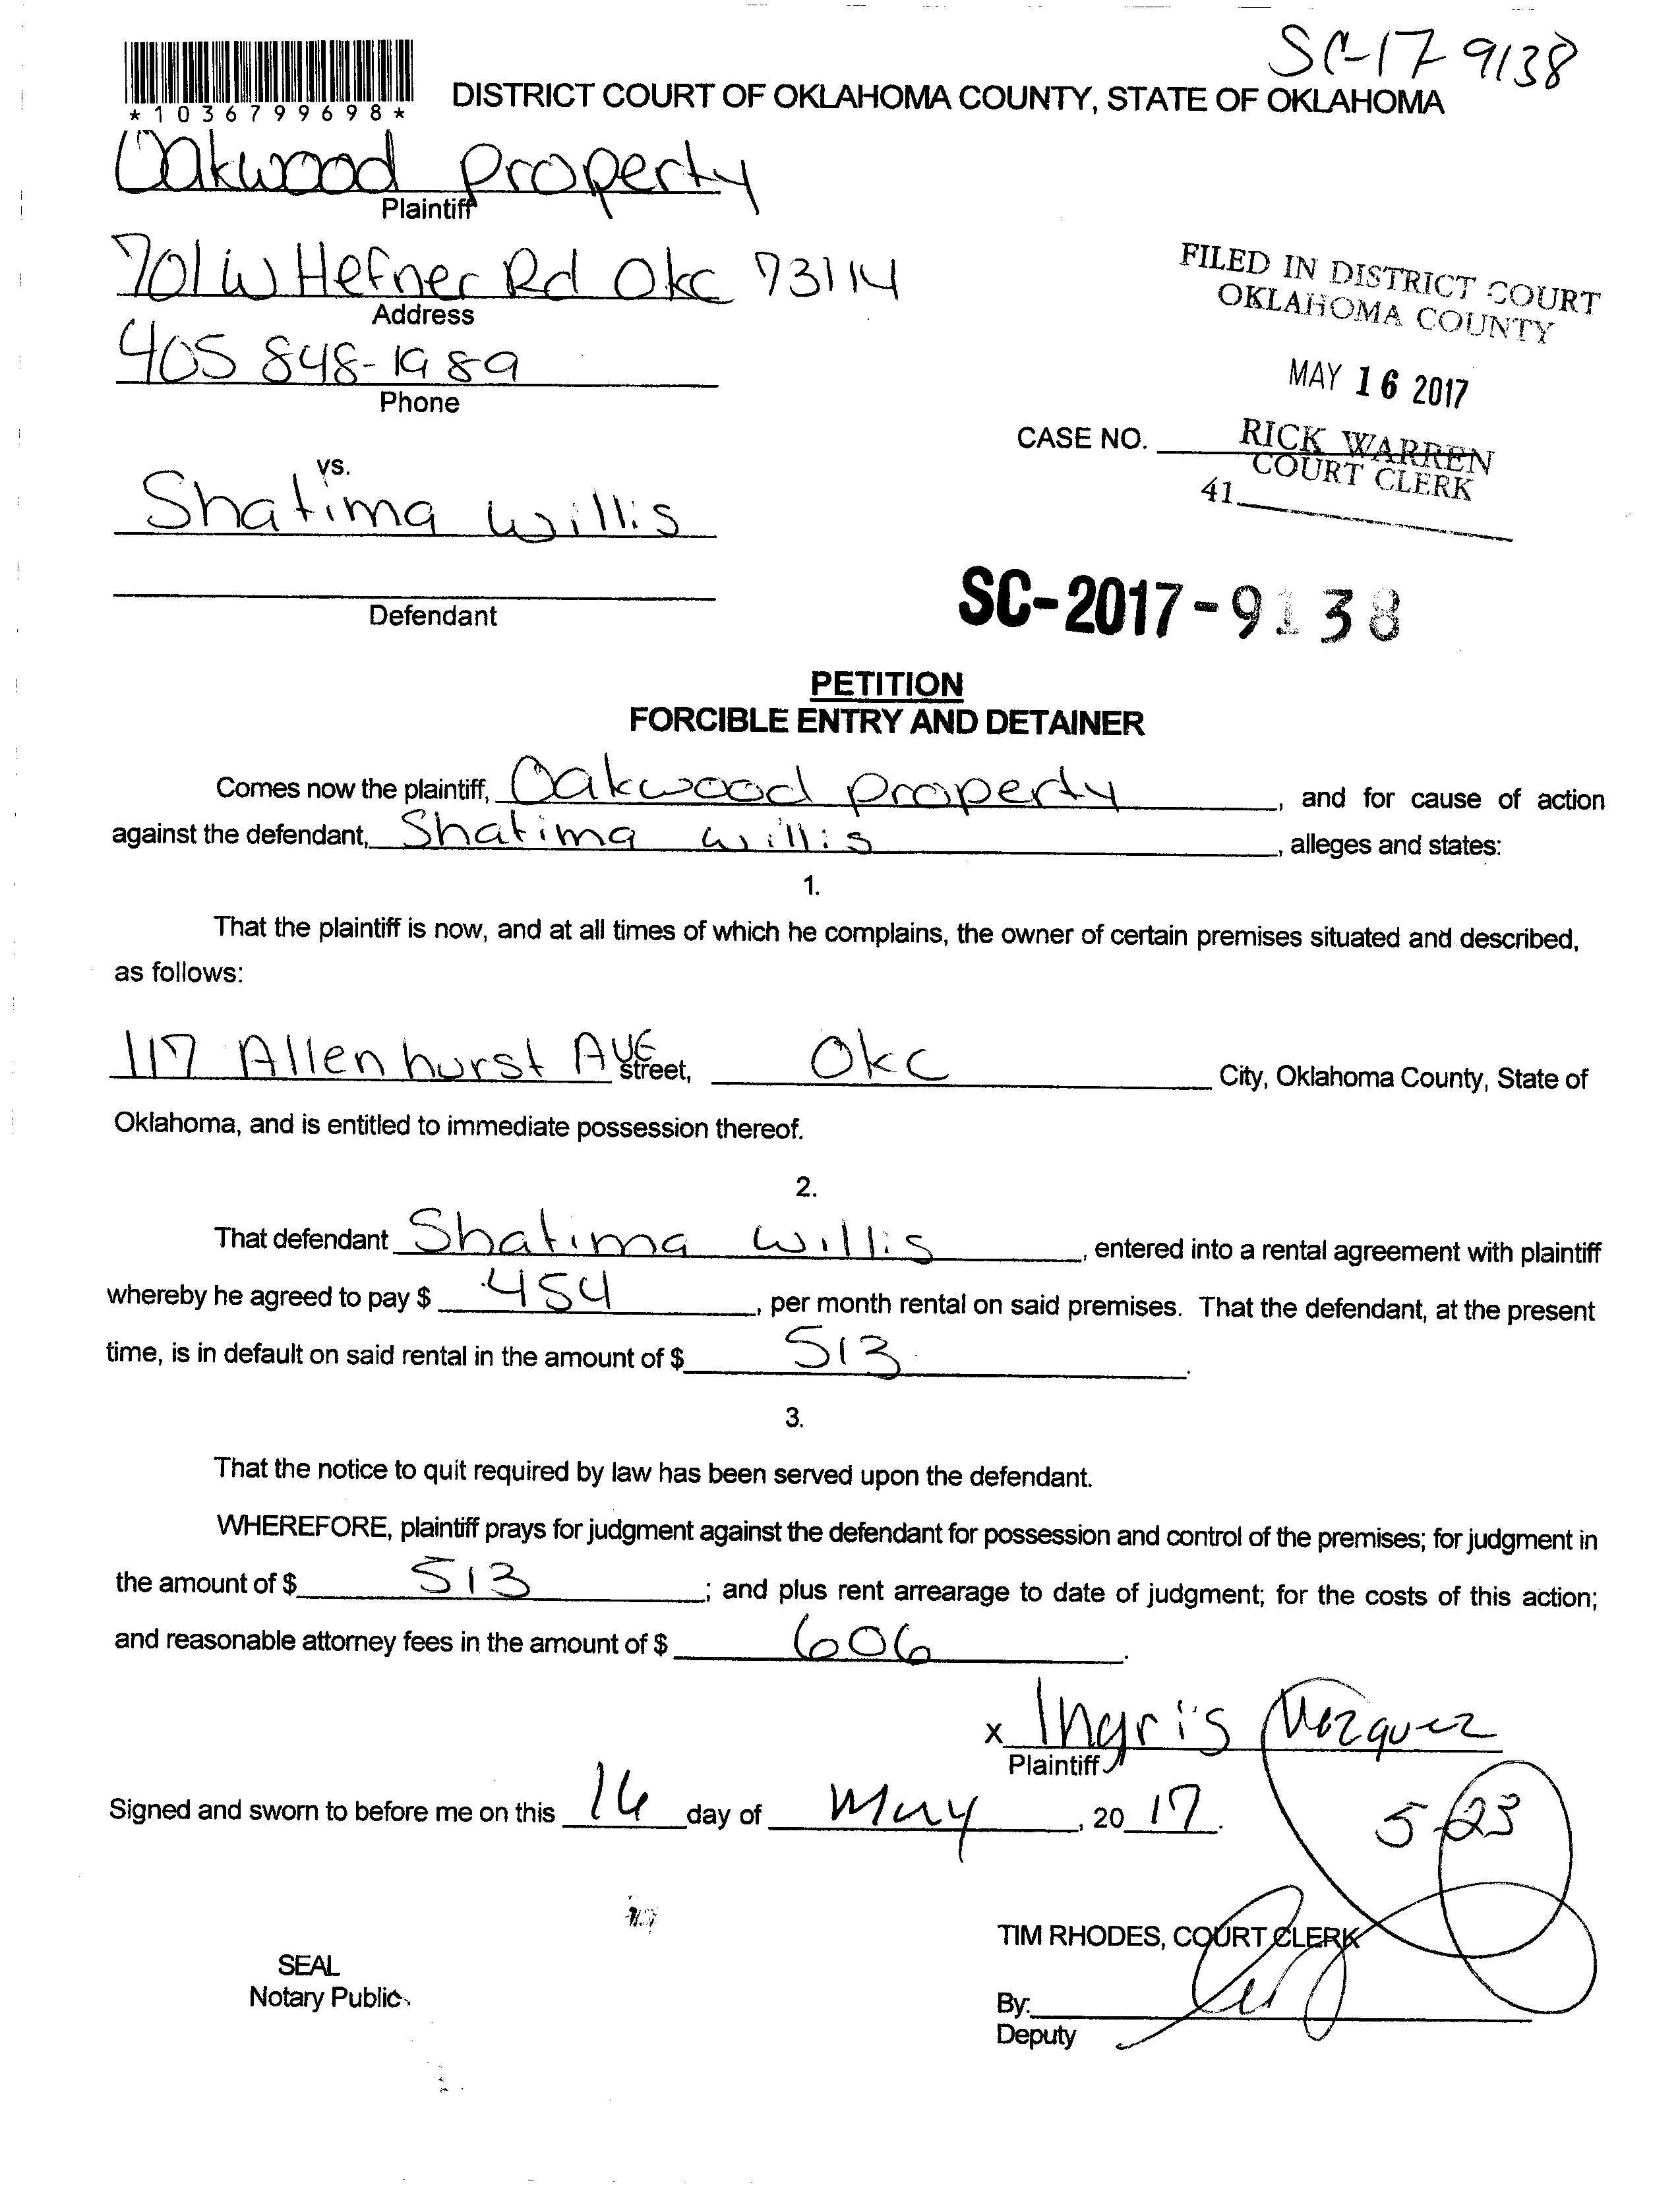 SC-17-9138
*1036799698*
DISTRICT COURT OF OKLAHOMA COUNTY, STATE OF OKLAHOMA
Oakwood property
Plaintiff
701 W Hefner Rd Okc 73114
Address
405 848-1989
Phone
FILED IN DISTRICT COURT
OKLAHOMA COUNTY
MAY 16 2017
RICK WARREN
COURT CLERK
41
CASE NO.
vs.
Shatima Willis
Defendant
SC-2017-9138
PETITION
FORCIBLE ENTRY AND DETAINER
Comes now the plaintiff, Oakwood property, and for cause of action
against the defendant, Shatima Willis, alleges and states:
1.
That the plaintiff is now, and at all times of which he complains, the owner of certain premises situated and described,
as follows:
117 Allenhurst AVE Street, Okc City, Oklahoma County, State of
Oklahoma, and is entitled to immediate possession thereof.
2.
That defendant Shatima Willis, entered into a rental agreement with plaintiff
whereby he agreed to pay $ 454, per month rental on said premises. That the defendant, at the present
time, is in default on said rental in the amount of $ 513.
3.
That the notice to quit required by law has been served upon the defendant.
WHEREFORE, plaintiff prays for judgment against the defendant for possession and control of the premises; for judgment in
the amount of $ 513; and plus rent arrearage to date of judgment; for the costs of this action;
and reasonable attorney fees in the amount of $ 606.
x Ingris Vazquez
Plaintiff
Signed and sworn to before me on this 16 day of May, 2017.
5-23
TIM RHODES, COURT CLERK
SEAL
Notary Public
By:
Deputy